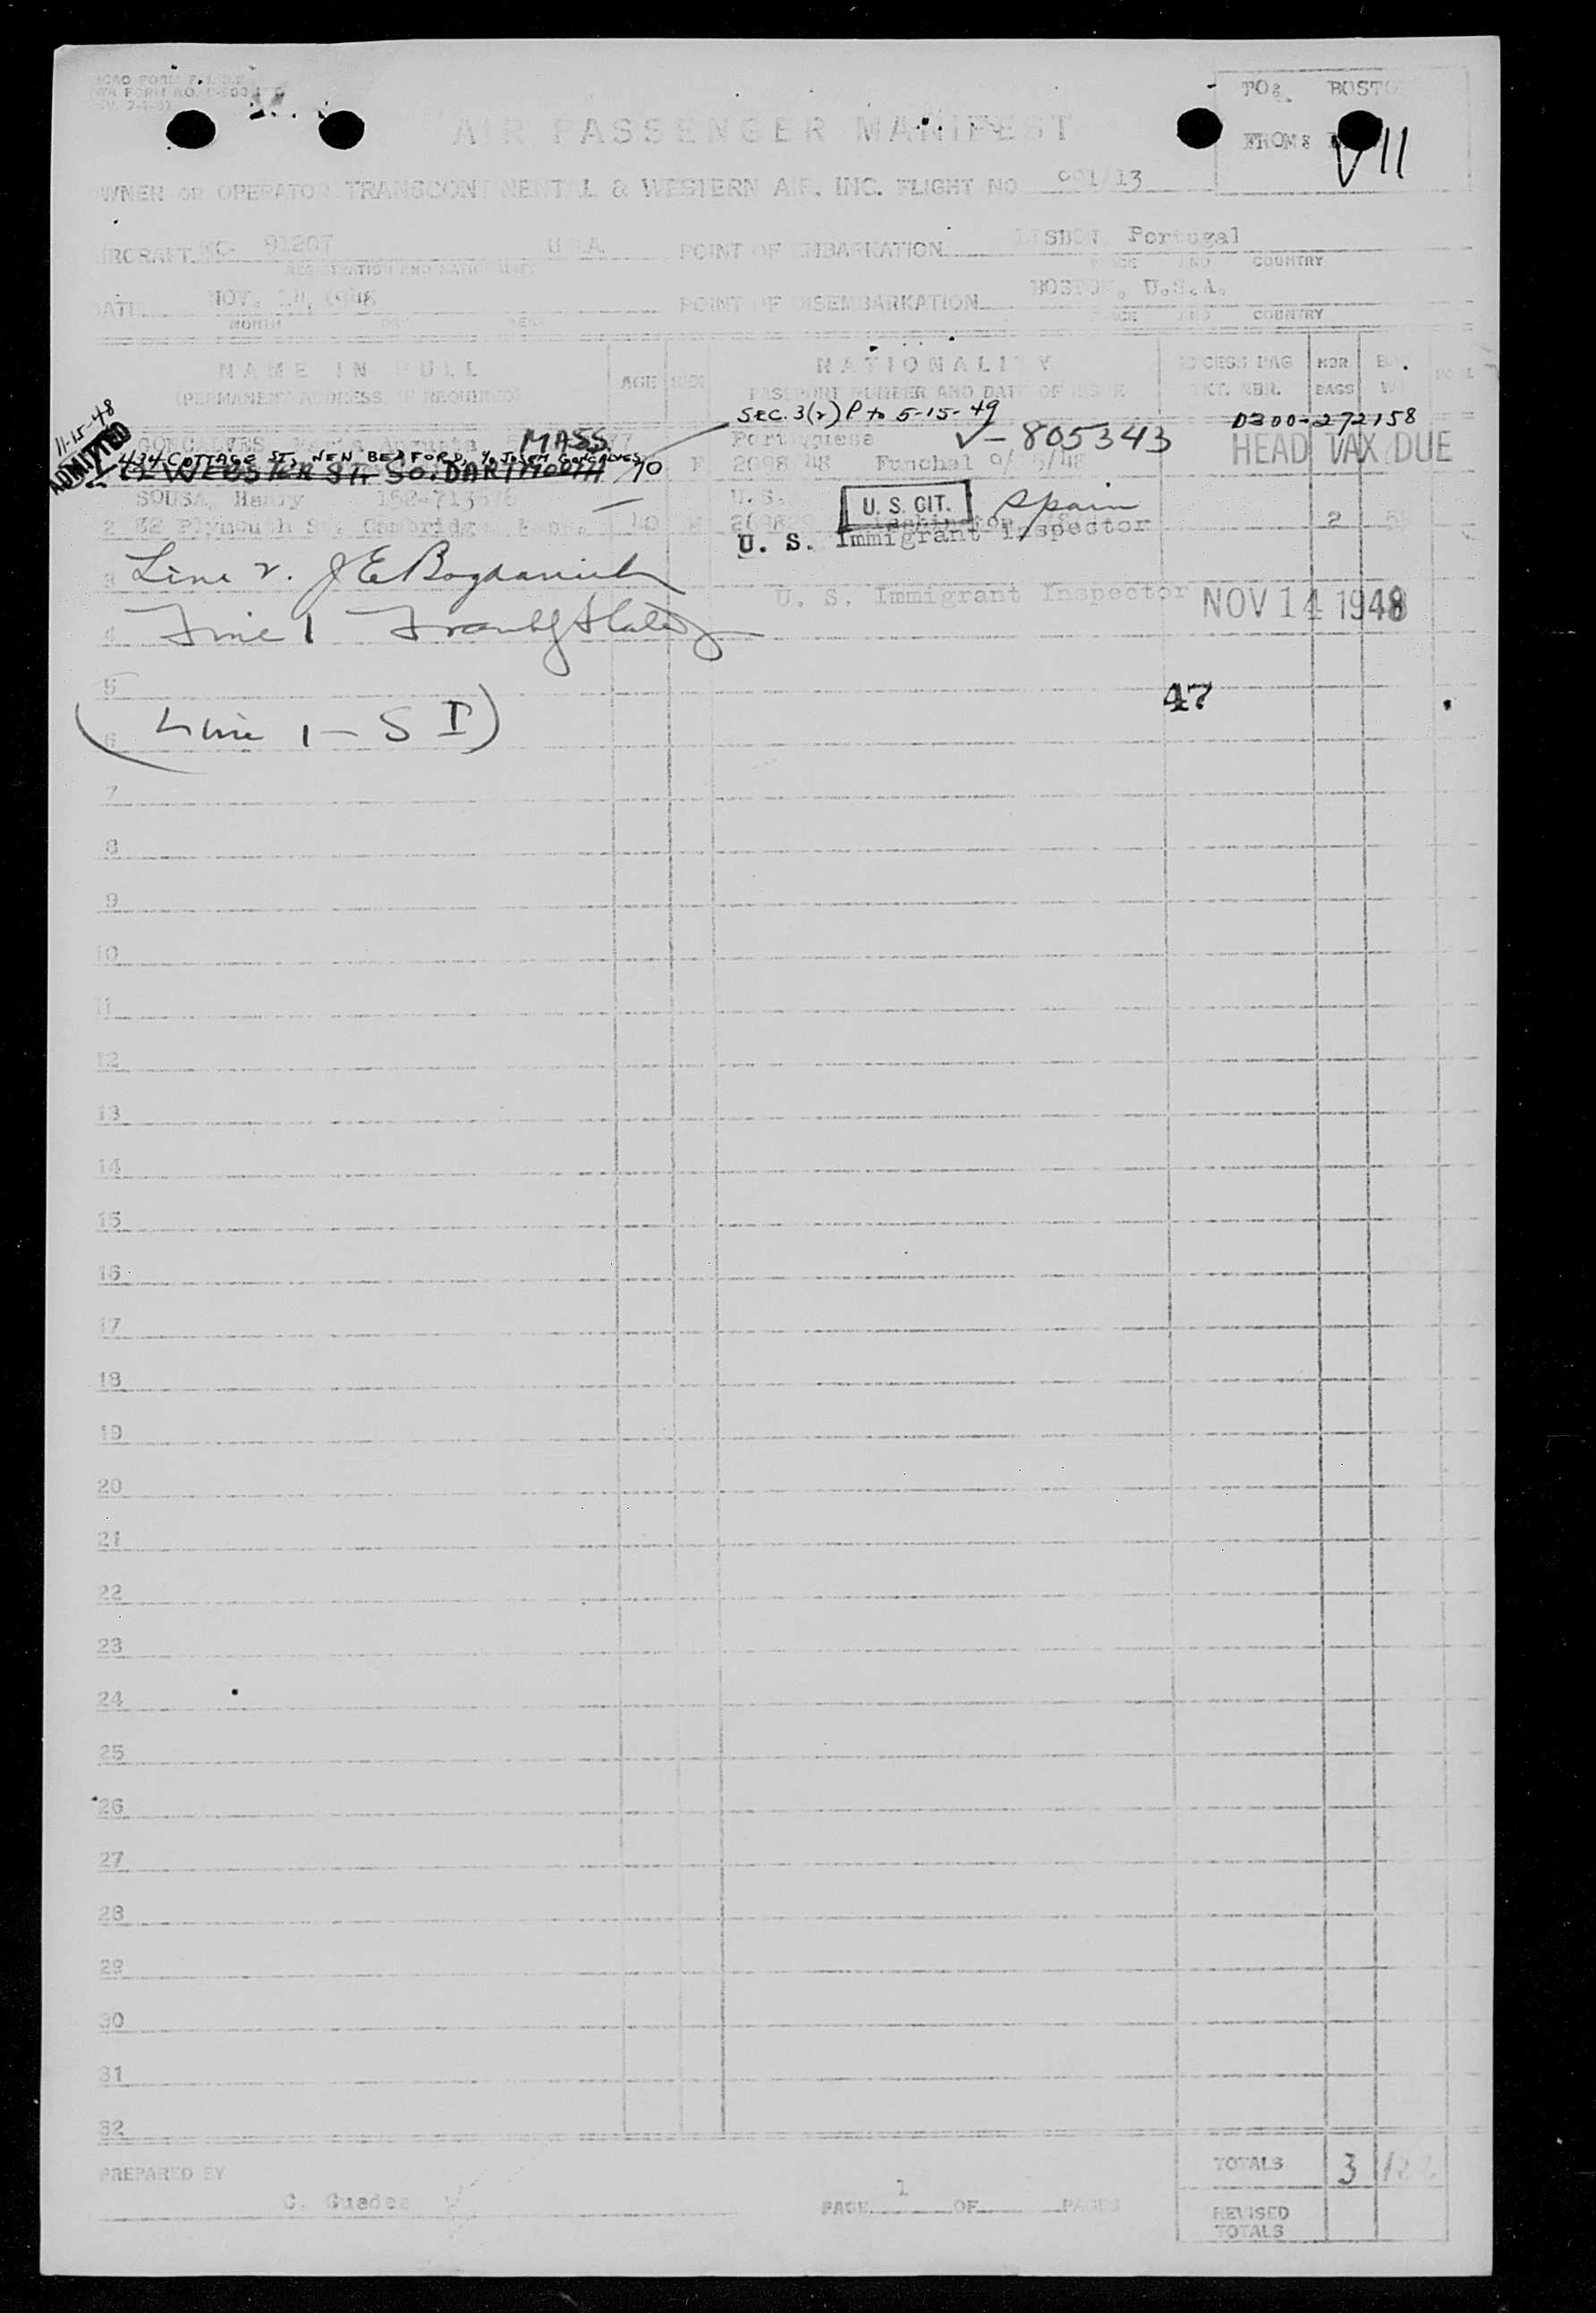 TO: BOSTO
FROM:
V 11
AIR PASSENGER MANIFEST
OWNER OR OPERATOR TRANSCONTINENTAL & WESTERN AIR, INC. FLIGHT NO 901/13
AIRCRAFT NC- 91207 U.S.A. POINT OF EMBARKATION LISBON Portugal
REGISTRATION AND NATIONALITY PLACE AND COUNTRY
DATE NOV. 1948 POINT OF DISEMBARKATION BOSTON, U.S.A.
MONTH DAY YEAR PLACE AND COUNTRY
NAME IN FULL
(PERMANENT ADDRESS IF REQUIRED)
AGE
SEX
NATIONALITY
PASSPORT NUMBER AND DATE OF ISSUE
EXCESS BAG
TKT. NBR.
NBR
BAGS
BAG
WT
11-15-48
ADMITTED
SEC. 3(2) P to 5-15-49
0300-272158
GONCALVES Maria Augusta MASS. Portuguese ✓-805343 HEAD TAX DUE
434 COTTAGE ST, NEW BEDFORD, % JOSEPH GONCALVES
WEBSTER ST. SO. DARTMOUTH 70 F 2098/48 Funchal 9/ /48
SOUSA, Henry U.S. U. S. CIT. Spain
2 32 Plymouth St. Cambridge, Mass. 40 Washington 2
U. S. Immigrant Inspector
3 Line 2. J E Bogdanich
U. S. Immigrant Inspector NOV 14 1948
4 Line 1
5
47
6 (Line 1 - S I)
7
8
9
10
11
12
13
14
15
16
17
18
19
20
21
22
23
24
25
26
27
28
29
30
31
32
TOTALS 3
PREPARED BY
C. Guedes
PAGE 1 OF PAGES
REVISED
TOTALS